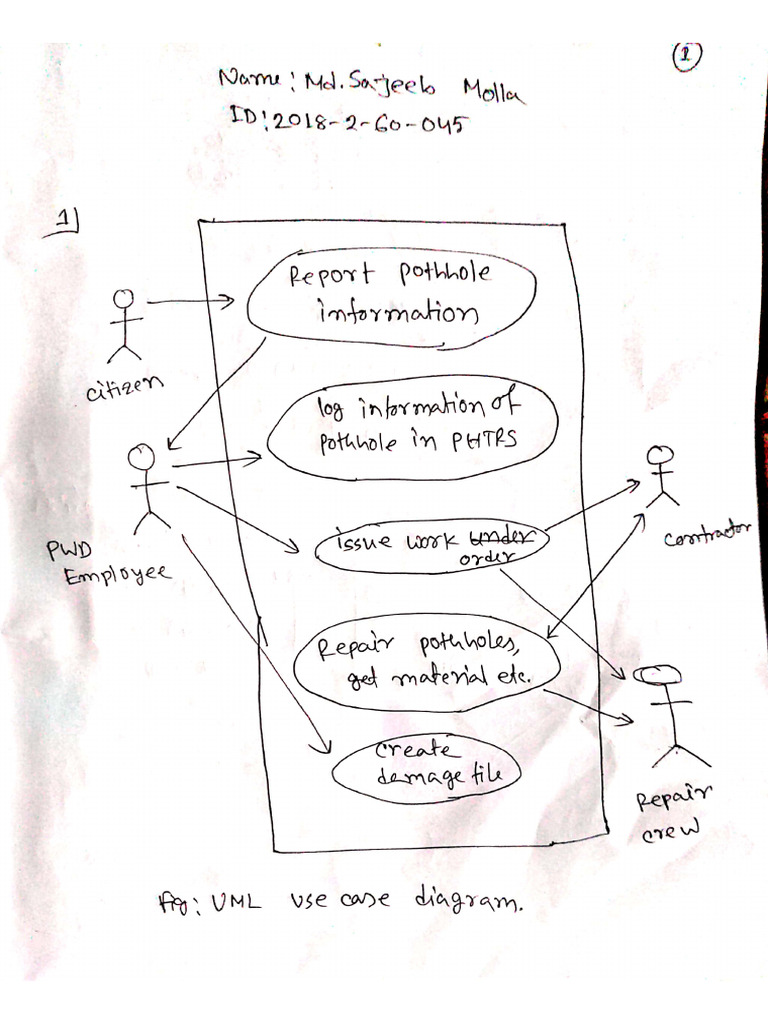 1
Name: Md. Sajeeb Molla
ID: 2018-2-60-045
1)
Report pothhole
information
citizen
log information of
pothhole in PHTRS
PWD
Employee
issue work under
order
contractor
Repair pothholes,
get material etc.
create
damage file
Repair
crew
fig: UML use case diagram.